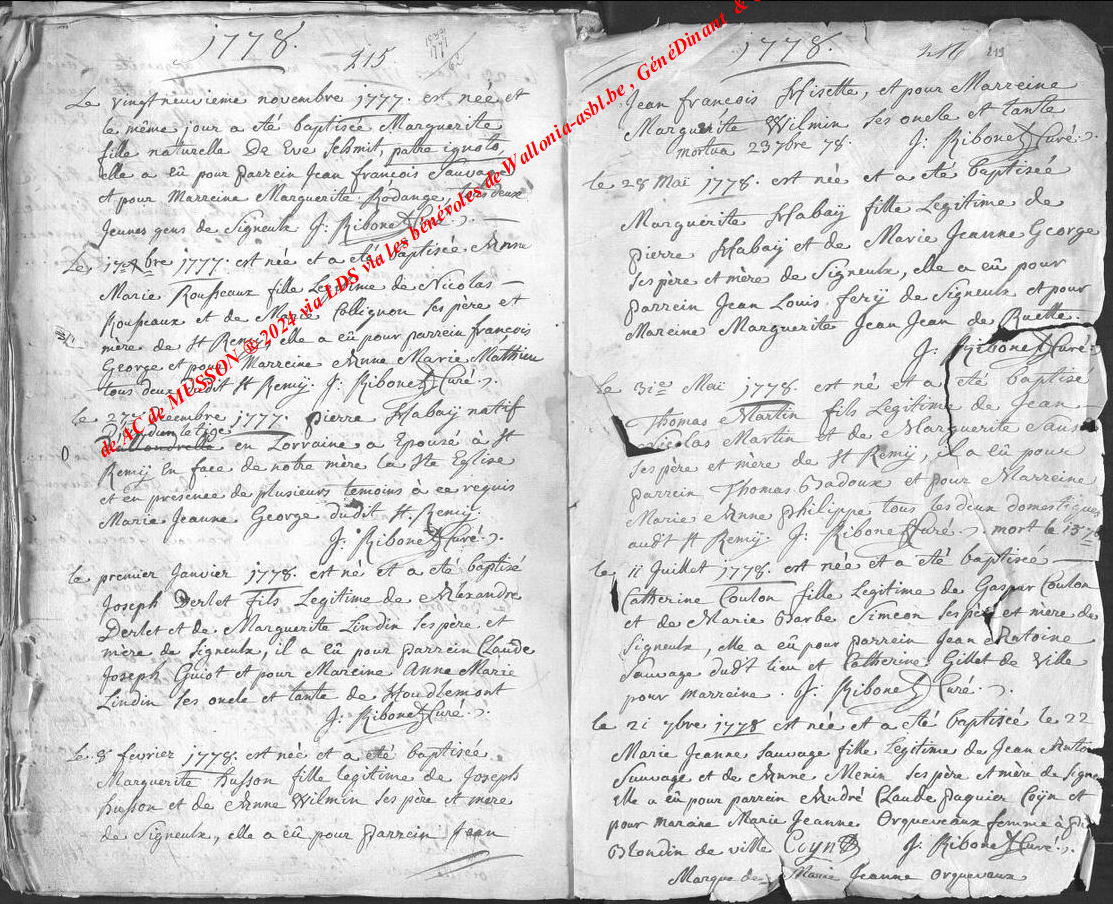 1778.
215
Le vingtneuvieme novembre 1777. est née et
le même jour a eté baptisée Marguerite
fille naturelle De Eve Schmit, patre ignoto,
elle a eû pour parrein Jean francois Sauvage
et pour Marreine Marguerite Rodange, tous deux
Jeunes gens de Signeulx J: Ribonet Curé.
Le 17 Xbre 1777. est née et a eté baptisée Anne
Marie Rousseaux fille Legitime de Nicolas
Rousseaux et de Marie Collignon ses père et
mère de St Remy, elle a eû pour parrein francois
George et pour Marreine Anne Marie Mathieu
tous deux dudit St Remÿ. J: Ribonet Curé.
le 27e Decembre 1777. Pierre Habaÿ natif
en Lorraine a Epousé à St
Remÿ En face de notre mère la Ste Eglise
et en presence de plusieurs temoins à ce requis
Marie Jeanne George dudit St Remy.
J: Ribonet Curé.
le premier Janvier 1778. est né et a eté baptisé
Joseph Derlet fils Legitime de Alexandre
Derlet et de Marguerite Lindin ses père et
mère de Signeulx, il a eû pour parrein Claude
Joseph Guiot et pour Mareine Anne Marie
Lindin ses oncle et tante de Houdlemont
J: Ribonet Curé.
Le 8 fevrier 1778. est née et a eté baptisée
Marguerite husson fille legitime de Joseph
husson et de Anne Wilmin ses père et mere
de Signeulx, elle a eû pour parrein Jean
1778.
216
219
Jean francois Hisette, et pour Marreine
Marguerite Wilmin ses oncle et tante
mortua 23 7bre 78. J: Ribonet Curé.
le 28 Maï 1778. est née et a eté baptisée
Marguerite Habaÿ fille Legitime de
pierre Habaÿ et de Marie Jeanne George
ses père et mère de Signeulx, elle a eû pour
parrein Jean Louis ferÿ de Signeulx et pour
Mareine Marguerite Jean Jean de Ruette
J: Ribonet Curé.
le 31e Maï 1778. est né et a eté baptisé
Thomas Martin fils Legitime de Jean
Nicolas Martin et de Marguerite Saus
ses père et mère de St Remÿ, il a eû pour
parrein Thomas Badoux et pour Marreine
Marie Anne philippe tous les deux domestiques
audt St Remÿ. J: Ribonet Curé. mort le 15
le 11 Juillet 1778. est née et a eté baptisée
Catherine Coulon fille Legitime de Gaspar Coulon
et de Marie Barbe Simeon ses père et mere de
Signeulx, elle a eû pour parrein Jean Antoine
Sauvage dudt lieu et Catherine Gillet de Ville
pour marraine. J: Ribonet Curé.
le 21 7bre 1778 est née et a eté baptisée le 22
Marie Jeanne Sauvage fille Legitime de Jean Antoi
Sauvage et de Anne Menin ses père et mère de Signe
Elle a eû pour parrein André Claude paquier Coÿn et
pour maraine Marie Jeanne Orqueveaux femme à
Blondin de ville Coyn J: Ribonet Curé.
Marque de Marie Jeanne Orquevaux
de AC de MUSSON ® 2024 via LDS via les bénévoles de Wallonia-asbl.be , GénéDinant &